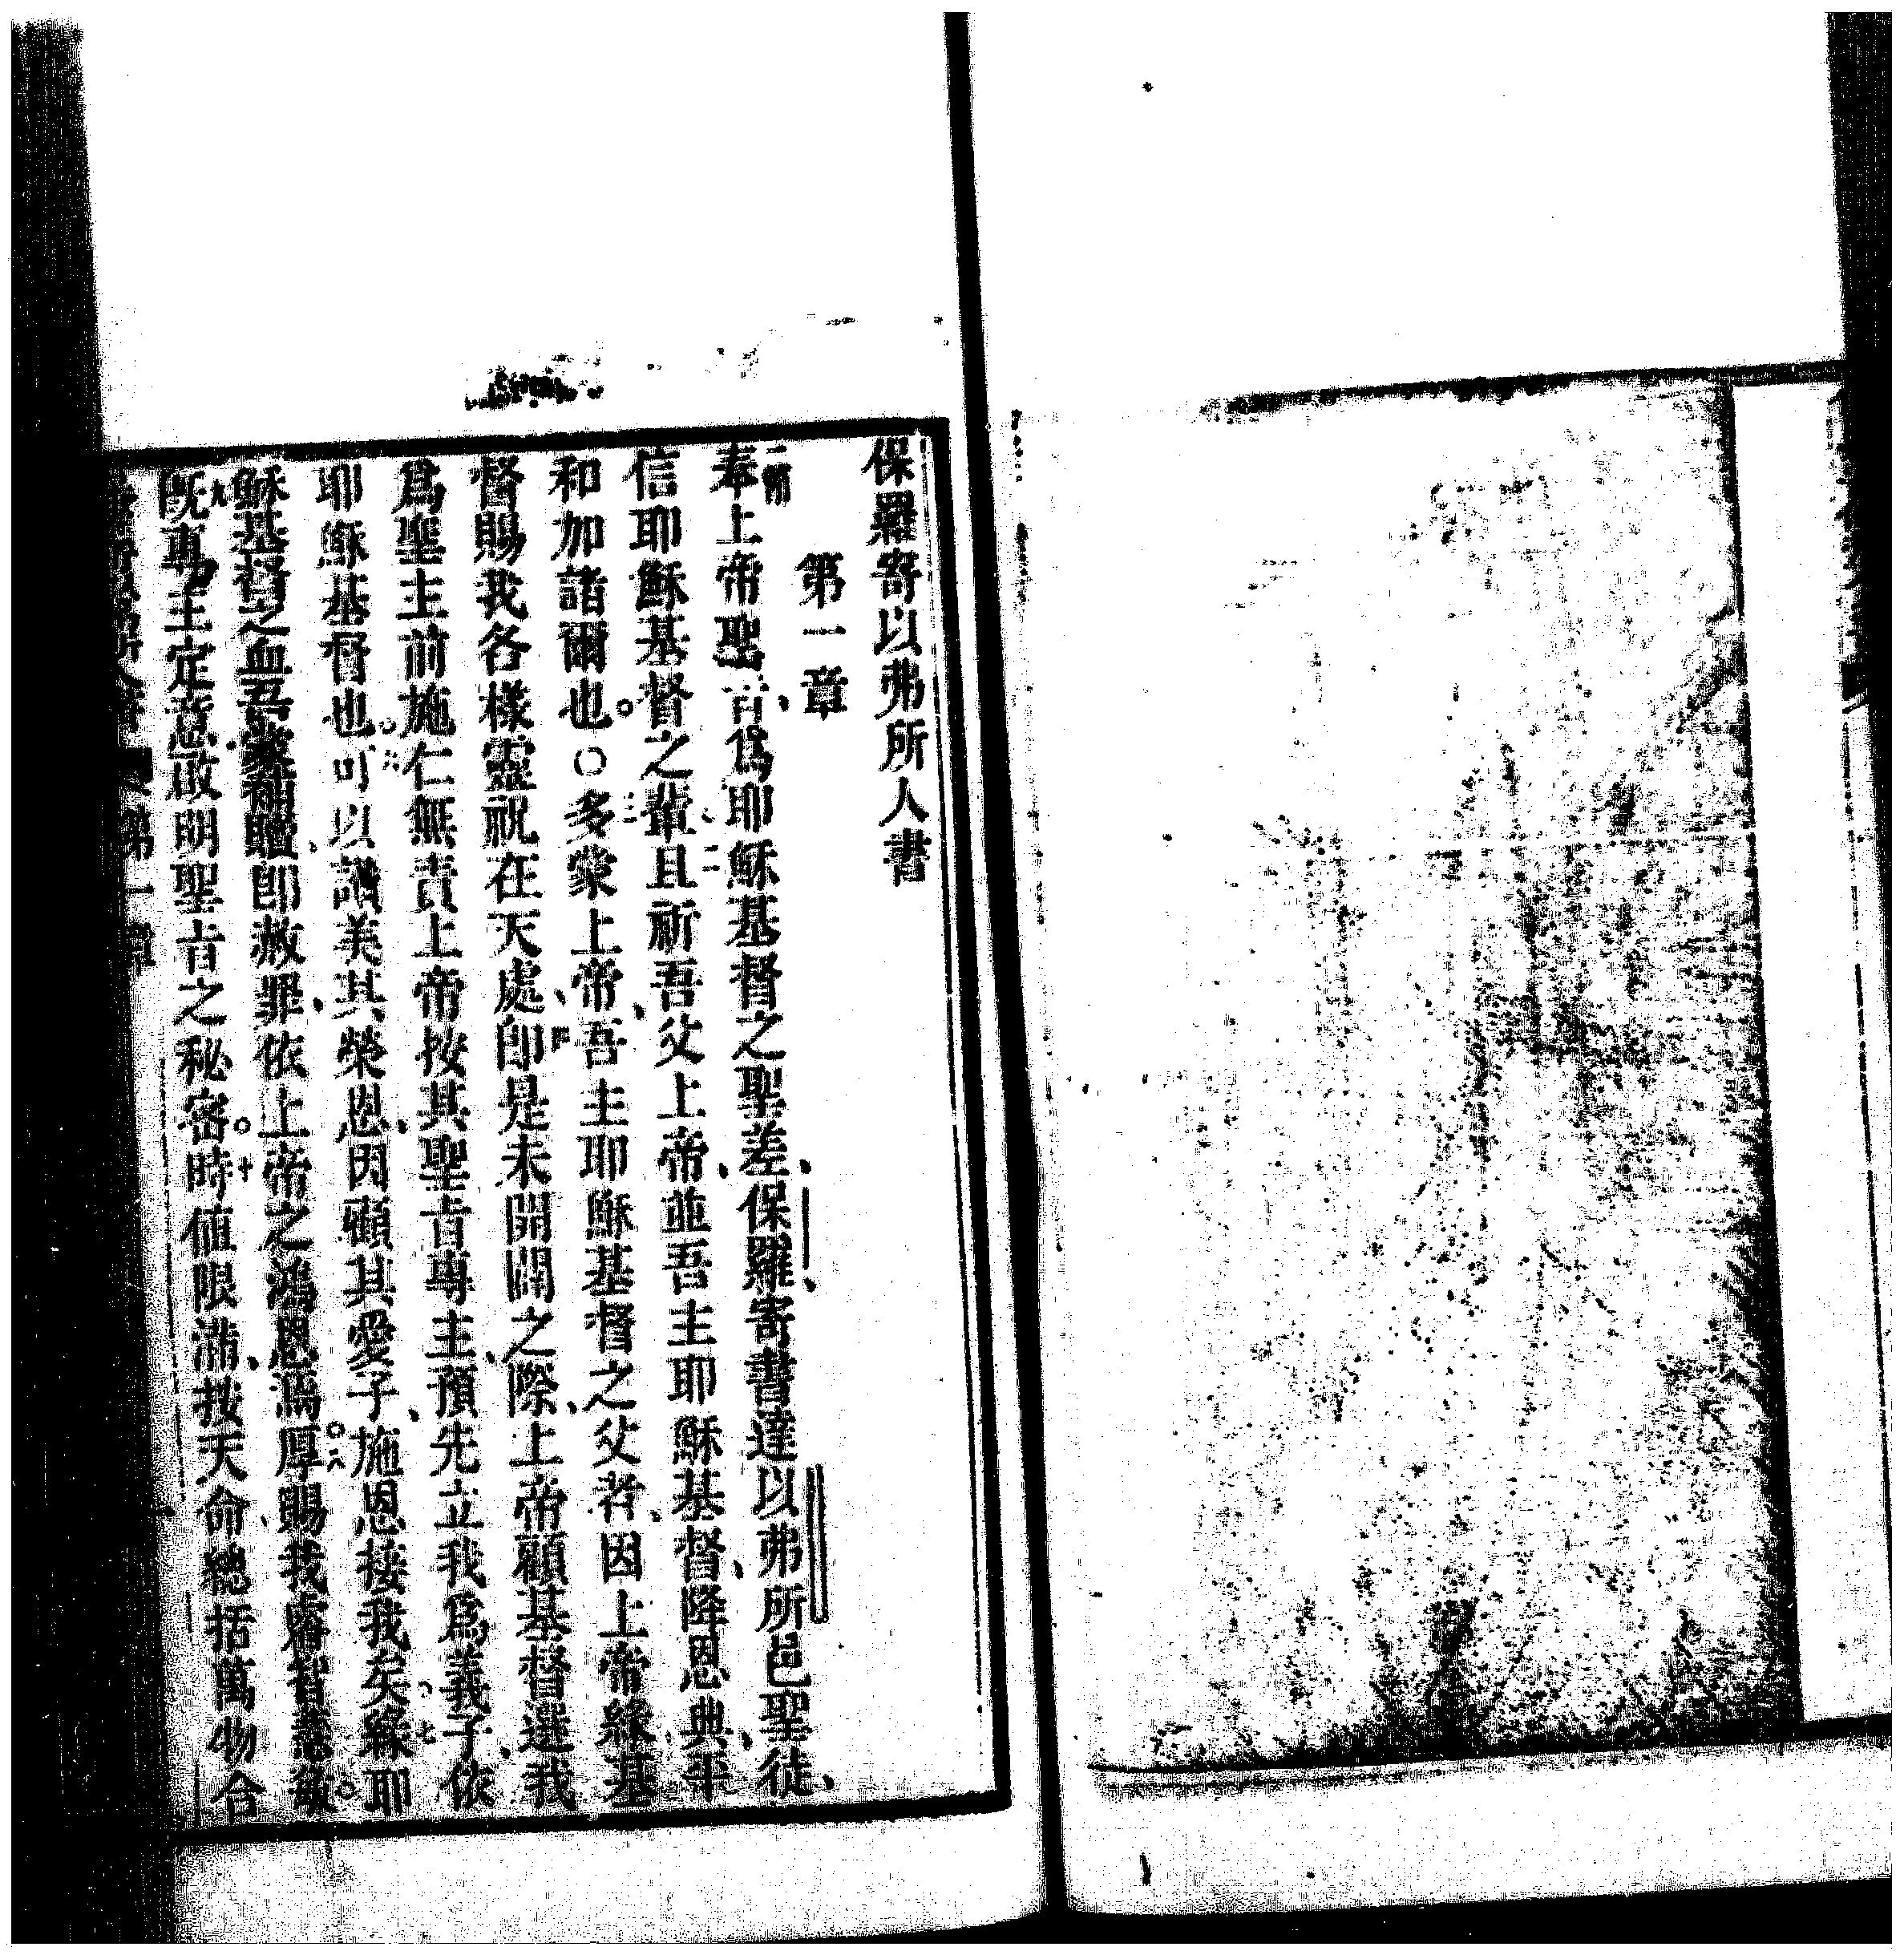 保羅寄以弗所人書
第一章
一節奉上帝聖旨、爲耶穌基督之聖差、保羅、寄書達以弗所邑聖徒、
信耶穌基督之輩、二且祈吾父上帝、並吾主耶穌基督、降恩典、平
和加諸爾也。○三多蒙上帝、吾主耶穌基督之父者、因上帝緣基
督賜我各樣靈祝在天處、四卽是未開闢之際、上帝顧基督選我
爲聖主前施仁無責上帝按其聖旨專主、預先立我爲義子、依
耶穌基督也。六可以讚美其榮恩、因頋其愛子、施恩接我矣。七緣耶
穌基督之血吾蒙補贖、卽赦罪、依上帝之鴻恩焉。八厚賜我睿智慧敏。
九旣專主定意、啟明聖旨之秘密。十時値限滿、按天命、總括萬物合
第一章